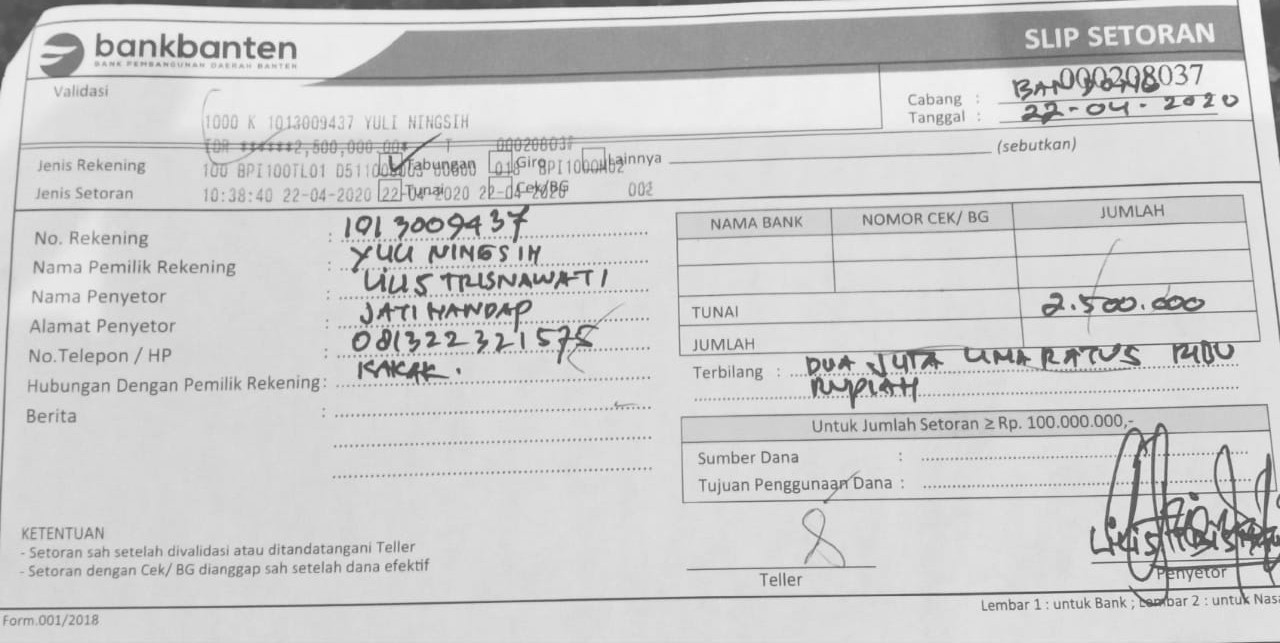 bankbanten
BANK PEMBANGUNAN DAERAH BANTEN
SLIP SETORAN
Validasi
000208037
Cabang : BANDUNG
Tanggal : 22-04-2020
1000 K 1013009437 YULI NINGSIH
IDR ******2,500,000.00* T 000208037
Jenis Rekening Tabungan Giro Lainnya (sebutkan)
100 BPI100TL01 BPI1000M02
Jenis Setoran Tunai Cek/BG
10:38:40 22-04-2020 22-04-2020 22-04-2020 002
No. Rekening : 1013009437
Nama Pemilik Rekening : YULI NINGSIH
Nama Penyetor : LILIS TRISNAWATI
Alamat Penyetor : JATI HANDAP
No.Telepon / HP : 081322321575
Hubungan Dengan Pemilik Rekening: KAKAK.
Berita :
NAMA BANK NOMOR CEK/ BG JUMLAH
TUNAI 2.500.000
JUMLAH
Terbilang : DUA JUTA LIMA RATUS RIBU
RUPIAH
Untuk Jumlah Setoran ≥ Rp. 100.000.000,-
Sumber Dana :
Tujuan Penggunaan Dana :
KETENTUAN
- Setoran sah setelah divalidasi atau ditandatangani Teller
- Setoran dengan Cek/ BG dianggap sah setelah dana efektif
Teller
Penyetor
Lembar 1 : untuk Bank ; Lembar 2 : untuk Nasa
Form.001/2018